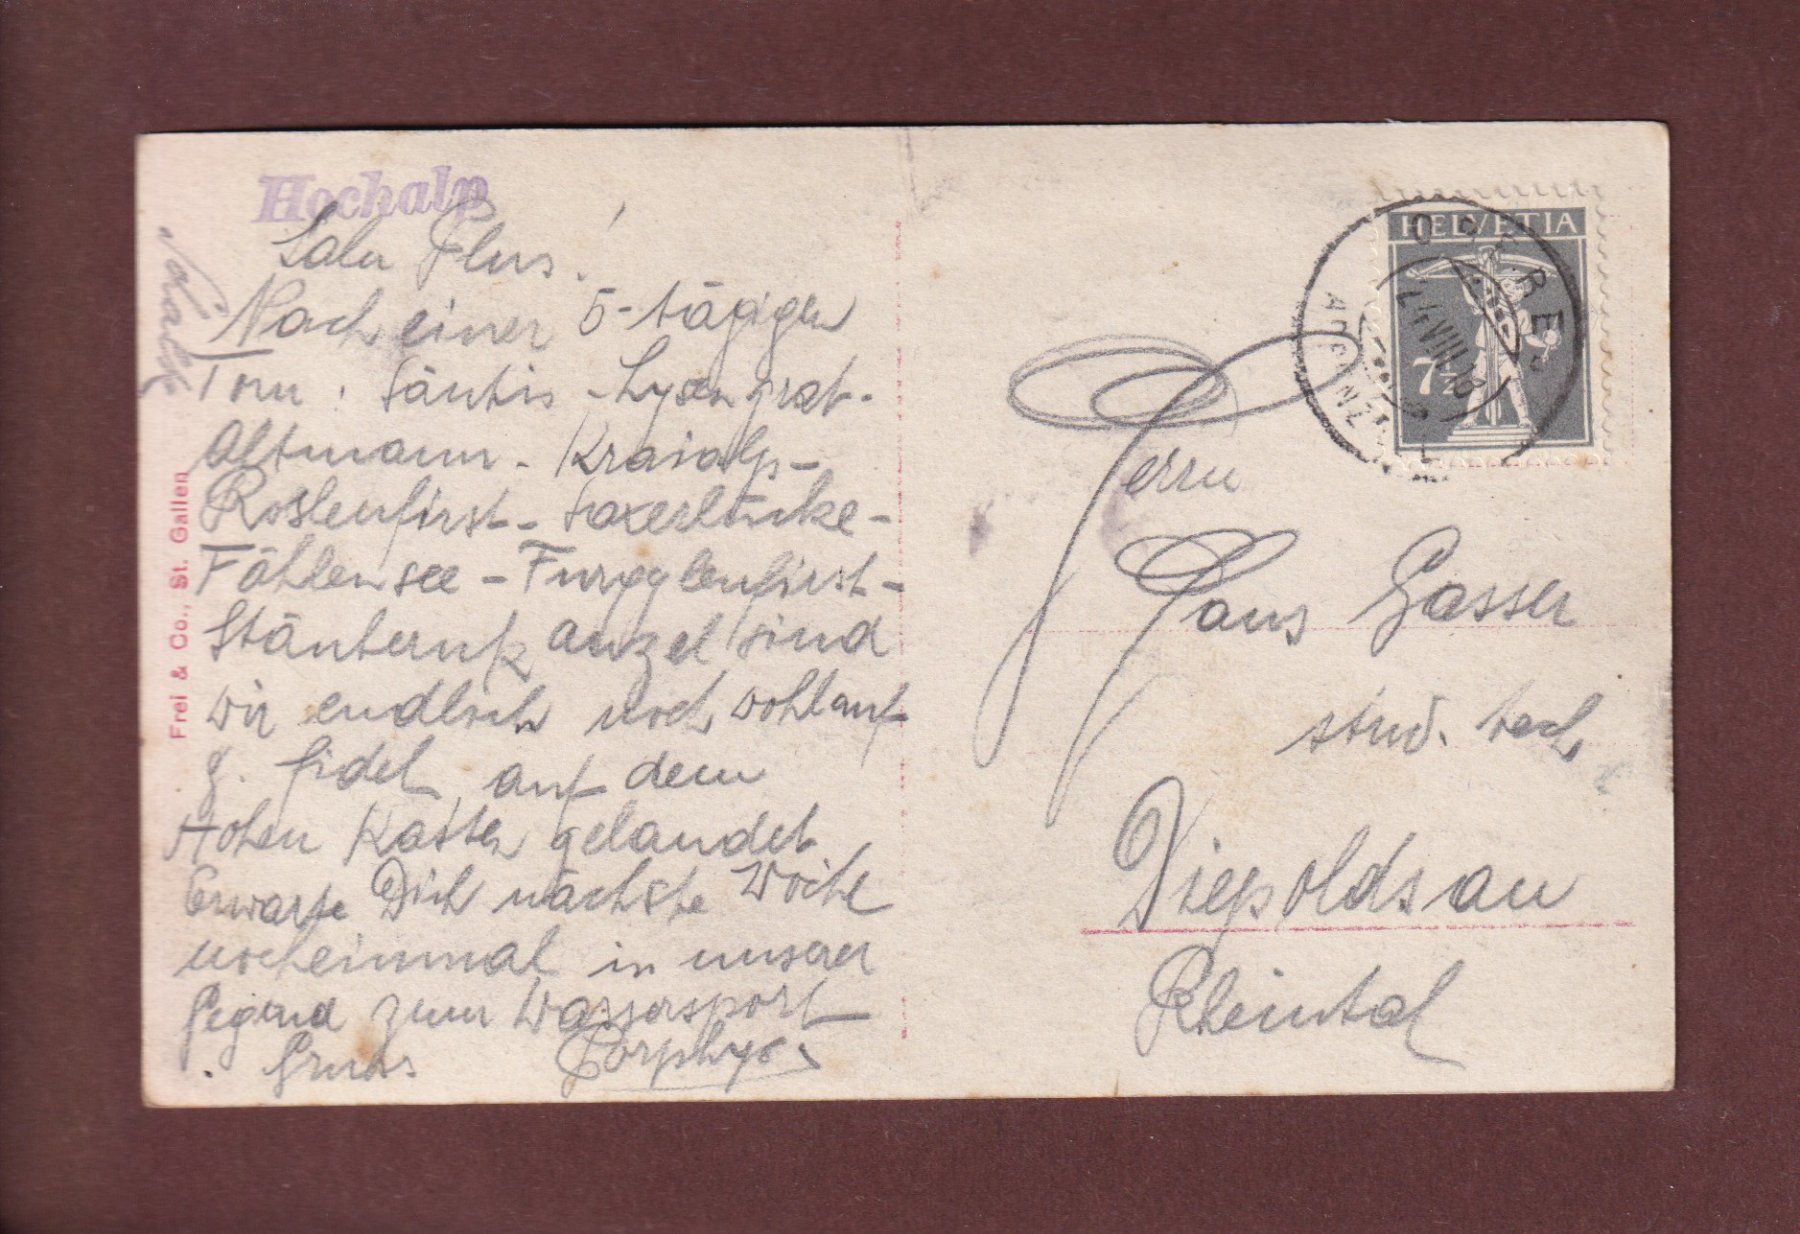 Hochalp
Salu Plus!
Nach einer 5-tägigen
Tour: Säntis - Lysengrat -
Altmann - Kraialp -
Roslenfirst - Saxerlücke -
Fählensee - Furgglenfirst -
Stänbernkanzel sind
wir endlich noch wohlauf
&. fidel auf dem
Hohen Kasten gelandet
Erwarte Dich nächste Woche
nocheinmal in unserer
Gegend zum Wassersport
Gruss Porphyr.
Frei & Co., St. Gallen
HELVETIA
7½
24 VIII 18
APPENZELL
Herrn
Hans Gasser
stud. tech
Diepoldsau
Rheintal